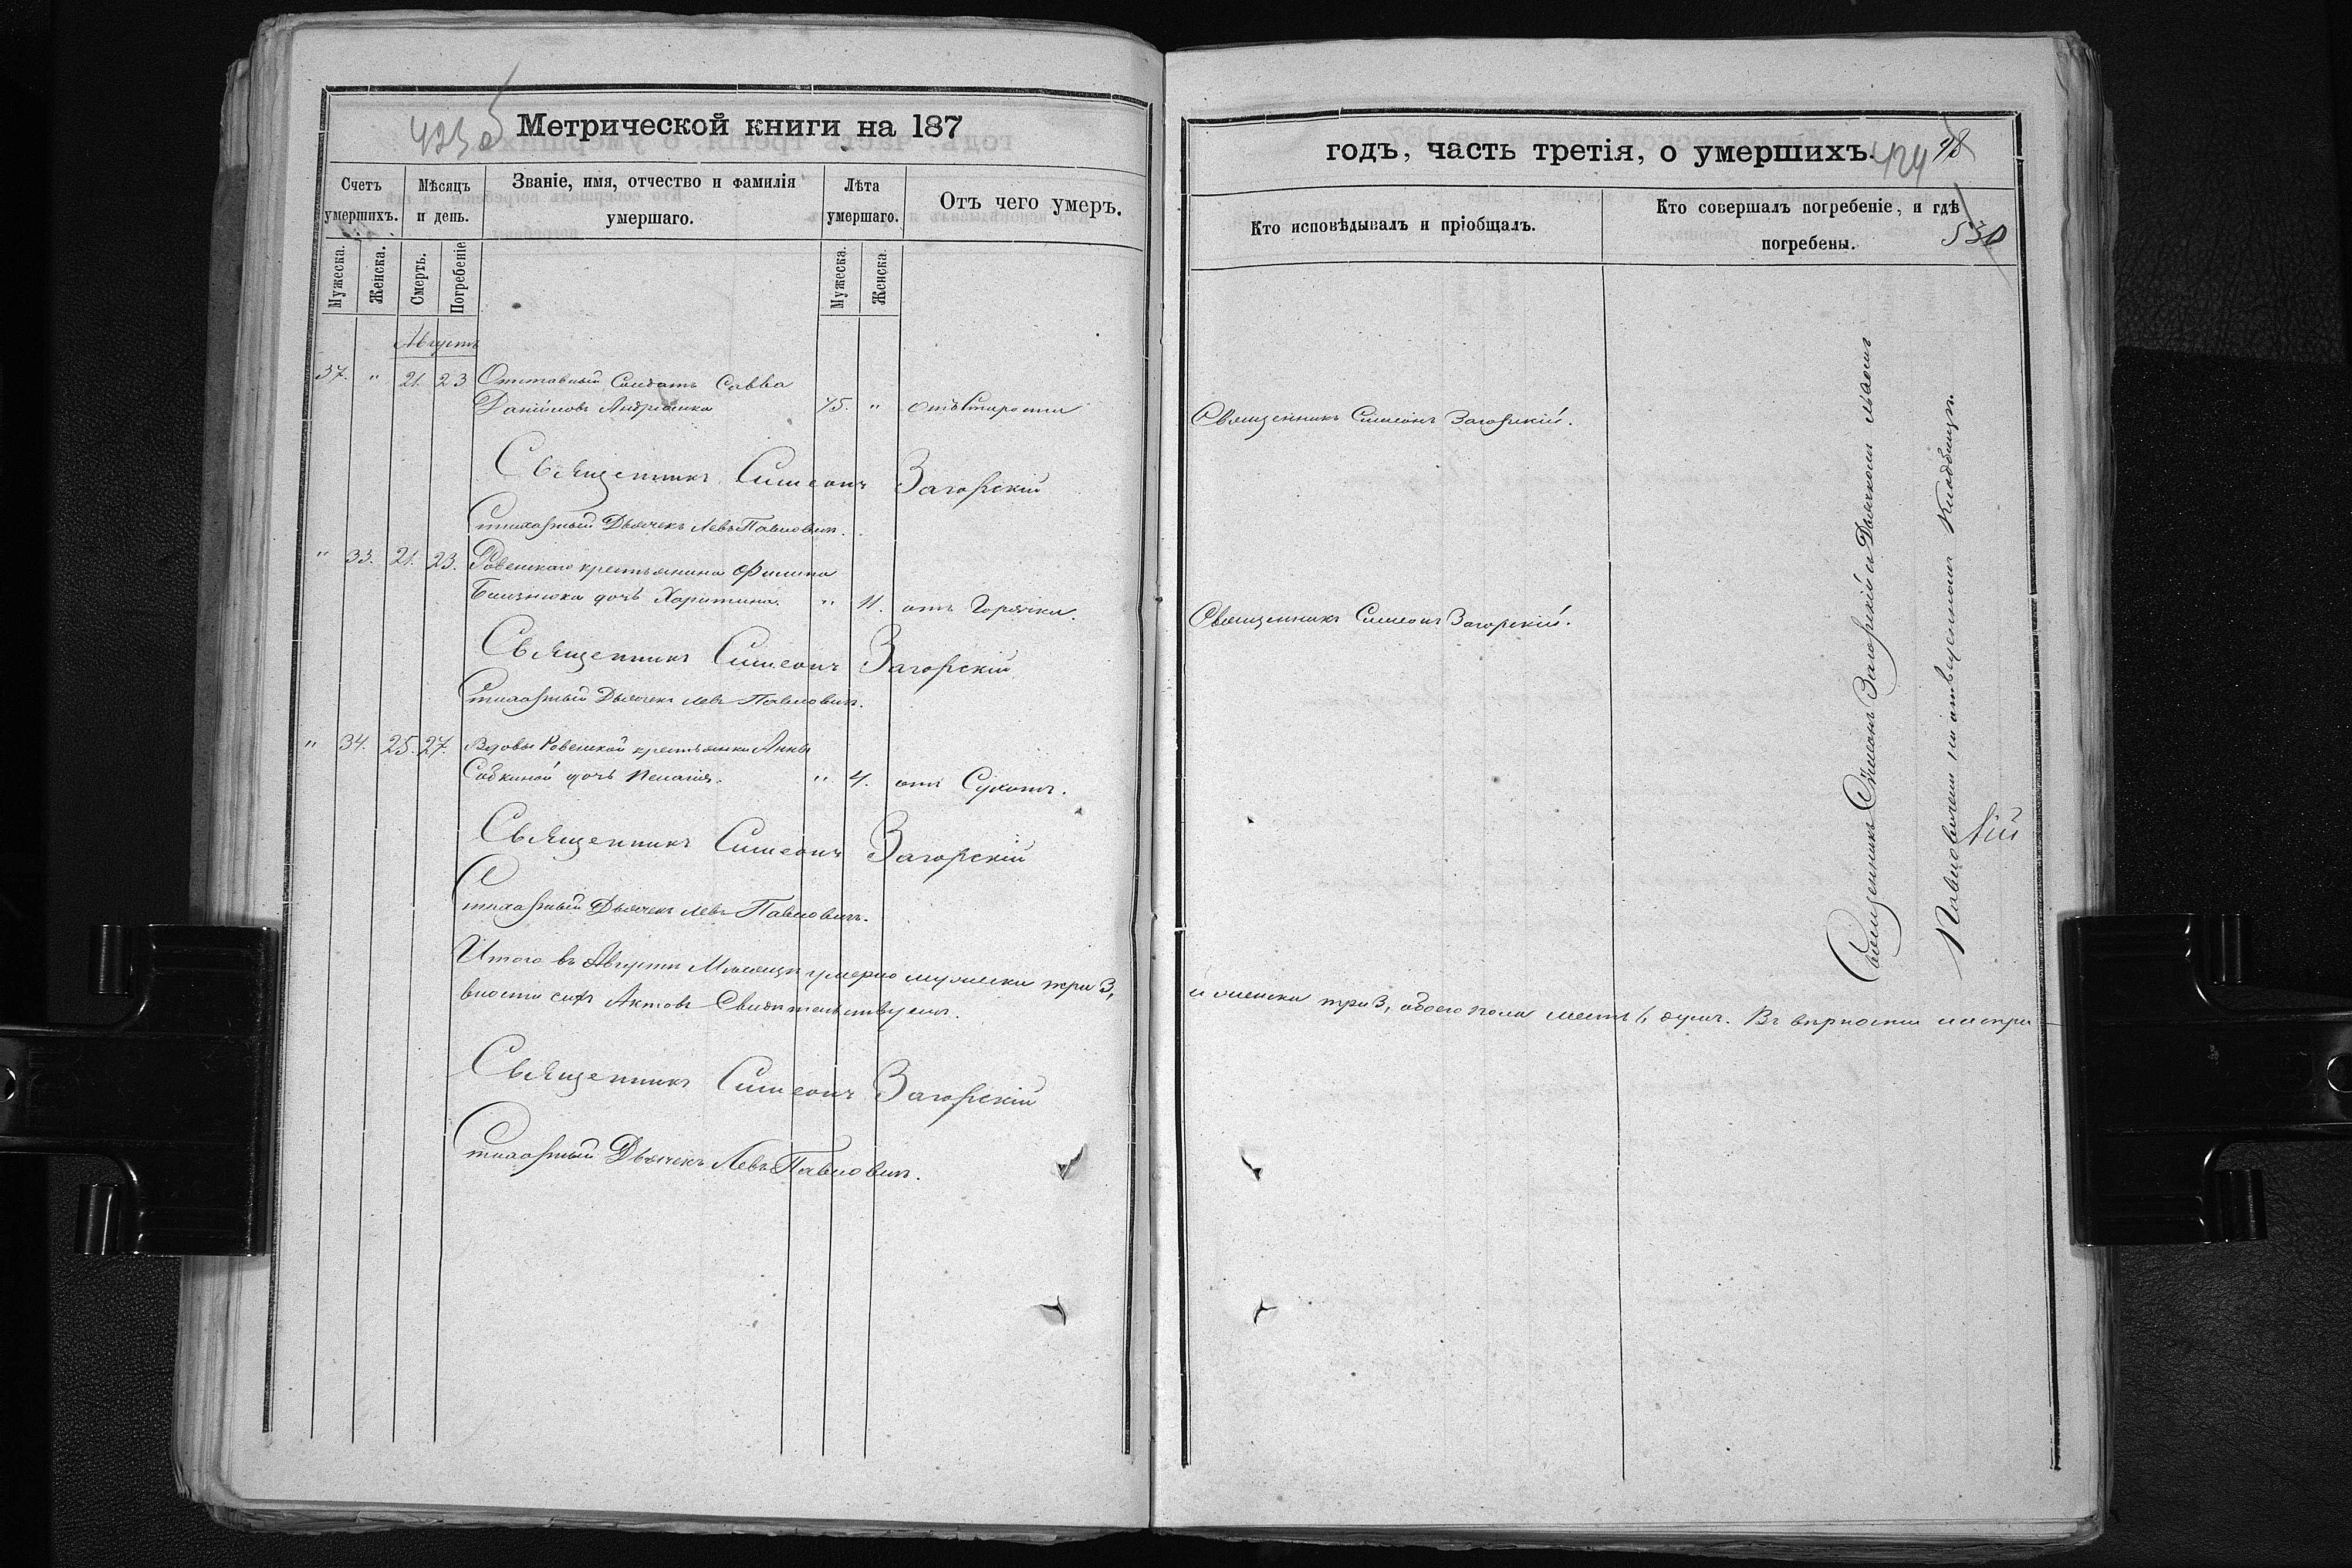 423 об
Метрической книги на 187
Счетъ умершихъ.
Мѣсяцъ и день.
Званіе, имя, отчество и фамилія умершаго.
Лѣта умершаго.
Отъ чего умеръ.
Мужеска.
Женска.
Смерть.
Погребеніе
Мужеска.
Женска
Августъ
37. " 21. 23 Отставный Солдатъ Савва
Даніиловъ Андріенко 75. " отъ Старости
Священникъ Симеонъ Загорскій
Стихарный Дьячекъ Левъ Павловичъ.
" 33. 21. 23. Ровенскаго крестьянина Филипа
дочь Харитина. " 11. отъ Горячки.
Священникъ Симеонъ Загорскій
Стихарный Дьячекъ Левъ Павловичъ.
" 34. 25. 27. Вдовы Ровенской крестьянки Анны
Собкиной дочь Пелагія. " 4. отъ Сухотъ.
Священникъ Симеонъ Загорскій
Стихарный Дьячекъ Левъ Павловичъ.
Итого въ Августѣ Мѣсяцѣ умерло мужеска три 3,
вности сихъ Актовъ Свидѣтельствуемъ.
Священникъ Симеонъ Загорскій
Стихарный Дьячекъ Левъ Павловичъ.
годъ, часть третія, о умершихъ.
424
48
530
Кто исповѣдывалъ и пріобщалъ.
Кто совершалъ погребеніе, и гдѣ
погребены.
Священникъ Симеонъ Загорскій.
Священникъ Симеонъ Загорскій.
Священникъ Симеонъ Загорскій и Дьячкомъ Львомъ
Павловичемъ на отведенномъ Кладбищѣ.
и женска три 3, обоего пола шесть 6 душъ. Въ вѣрности и испра-